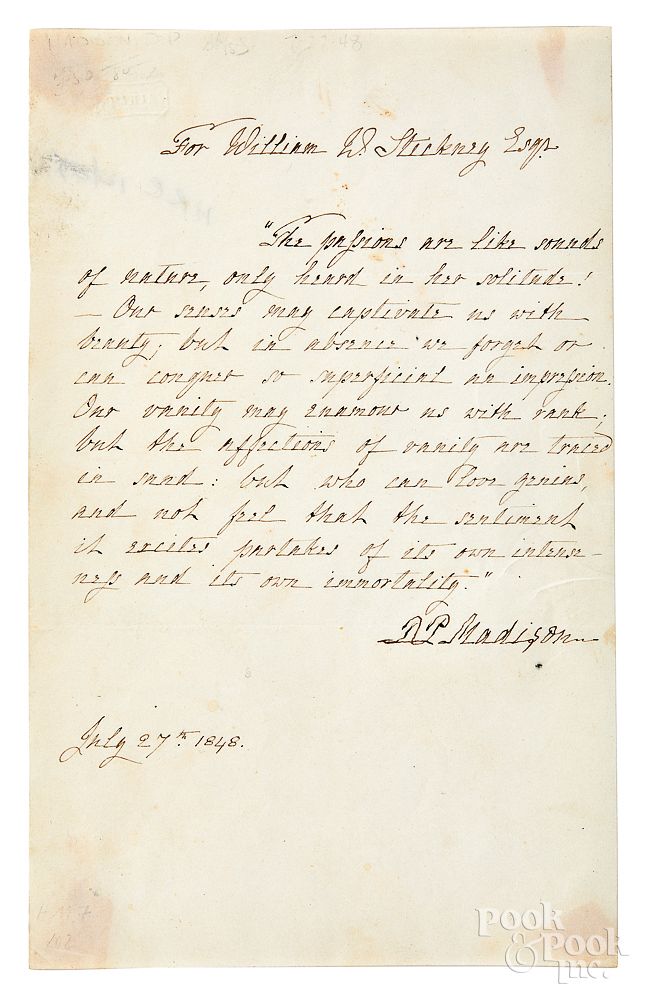 For William W. Stickney Esqr.
"The passions are like sounds
of nature, only heard in her solitude!
— Our senses may captivate us with
beauty; but in absence we forget or
can conquer so superficial an impression.
Our vanity may enamour us with rank;
but the affections of vanity are traced
in sand: but who can love genius,
and not feel that the sentiment
it excites partakes of its own intense-
ness and its own immortality."
DP Madison
July 27th 1848.
102
Pook
& Pook
inc.